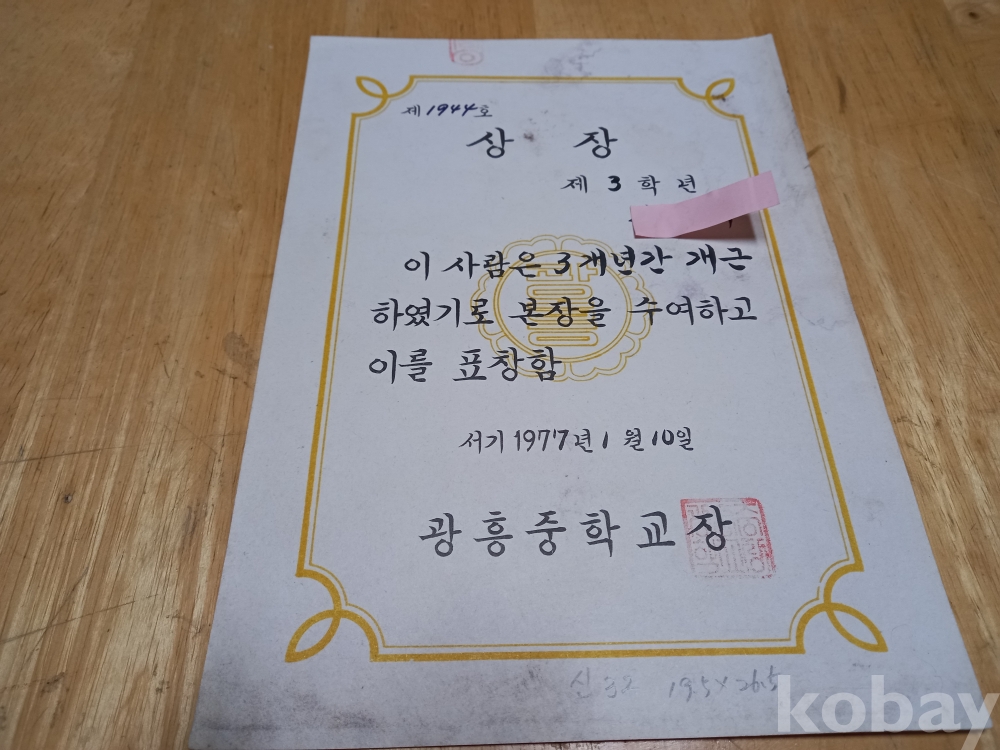 제 1944 호
상 장
제 3 학 년
이 사람은 3개년간 개근
하였기로 본장을 수여하고
이를 표창함
서기 1977년 1월 10일
광흥중학교장
19.5 x 26.5
kobay